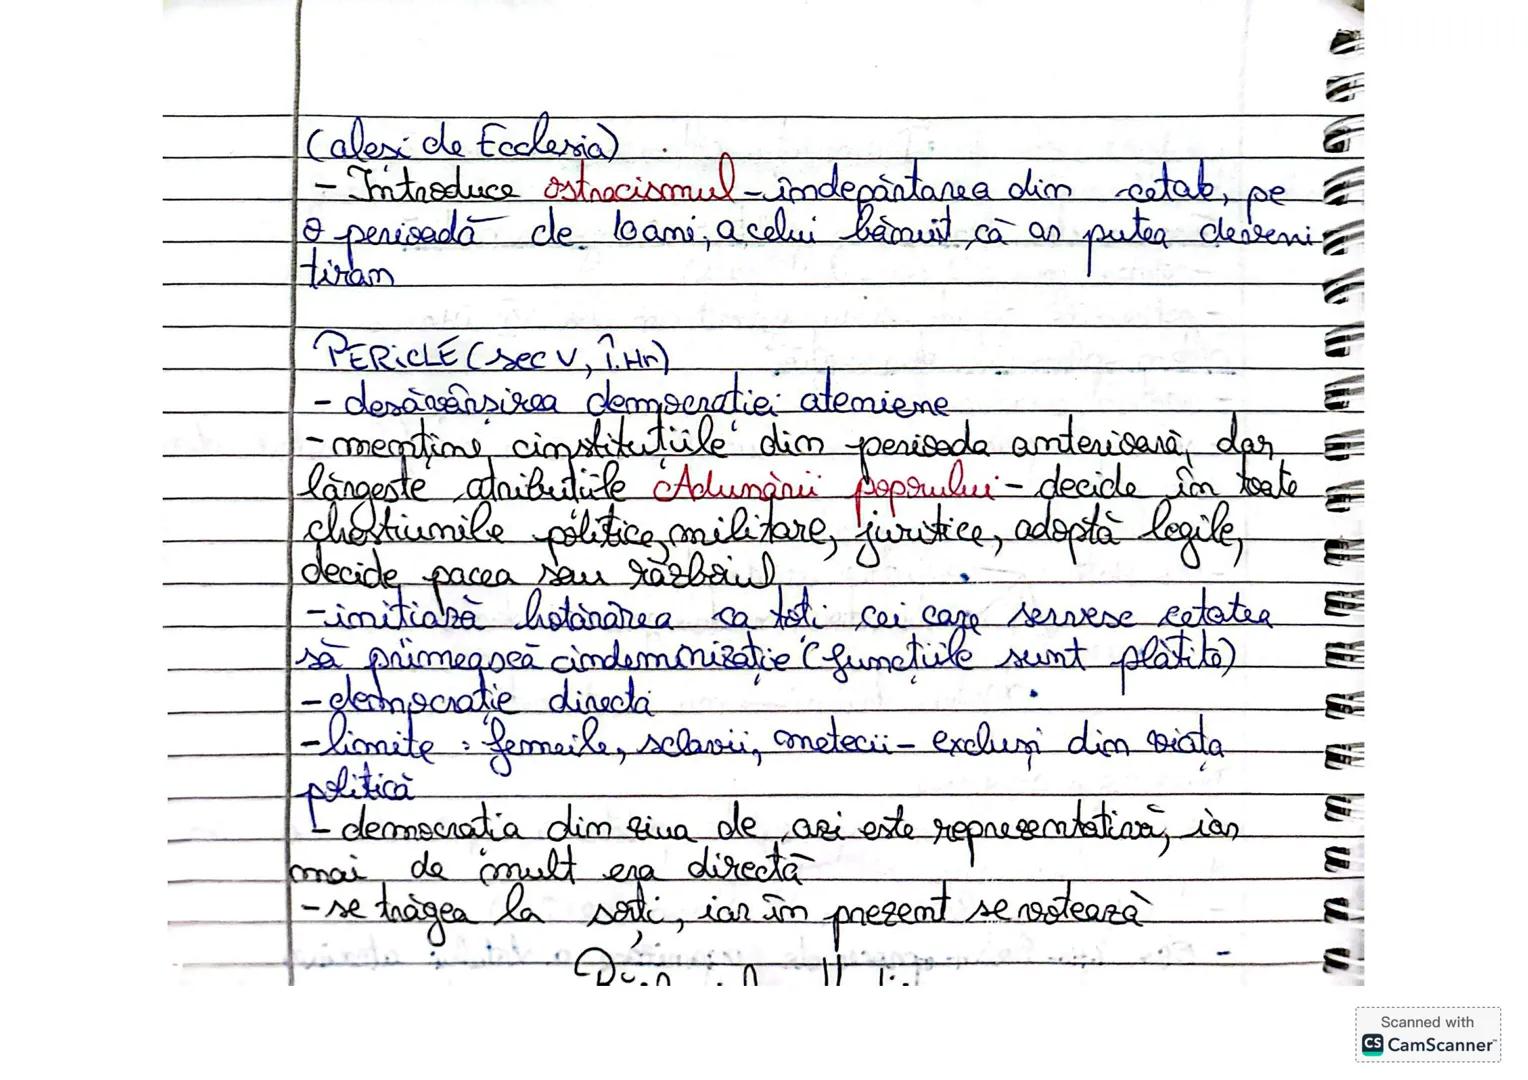 (aleși de Ecclesia)
- Introduce ostracismul - îndepărtarea din cetate, pe
o perioadă de 10 ani, a celui bănuit că ar putea deveni
tiran
PERICLE (sec V, î.Hr)
- desăvârșirea democrației ateniene
- menține instituțiile din perioada anterioară, dar
lărgește atribuțiile Adunării poporului - decide în toate
chestiunile politice, militare, juritice, adoptă legile,
decide pacea sau războiul
- inițiază hotărârea ca toți cei care servesc cetatea
să primească indemnizație (funcțiile sunt plătite)
- democrație directă
- limite: femeile, sclavii, metecii - excluși din viața
politică
- democrația din ziua de azi este reprezentativă, iar
mai de mult era directă
- se trăgea la sorți, iar în prezent se votează
Scanned with
CS CamScanner